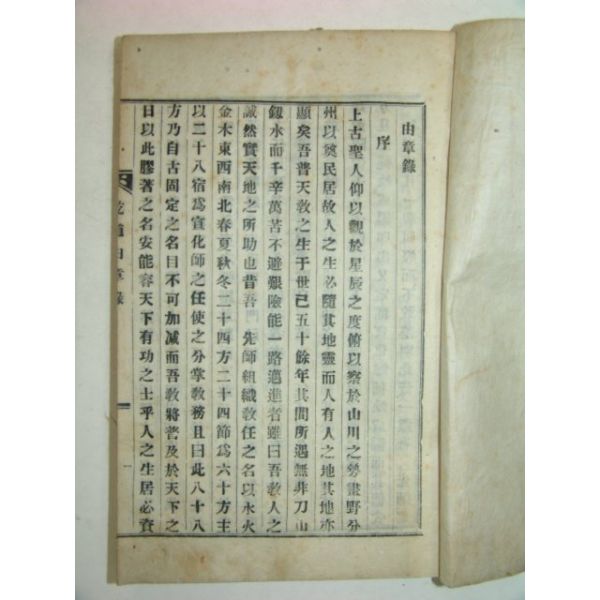 由章錄
序
上古聖人仰以觀於星辰之度俯以察於山川之勢畫野分
州以奠民居故人之生必隨其地靈而人有人之地其地亦
顯矣吾普天敎之生于世已五十餘年其間所遇無非刀山
劒水而千辛萬苦不避艱險能一路邁進者雖曰吾敎人之
誠然實天地之所助也昔吾 先師組織敎任之名以水火
金木東西南北春夏秋冬二十四方二十四節爲六十方主
以二十八宿爲宣化師之任使之分掌敎務且曰此八十八
方乃自古固定之名目不可加減而吾敎將普及於天下之
日以此膠著之名安能容天下有功之士乎人之生居必資
乾道由章錄
一